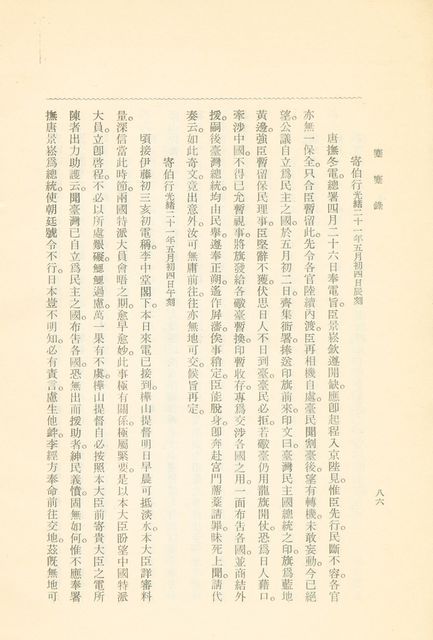 蹇蹇錄
八六
寄伯行光緒二十一年五月初四日辰刻
唐撫冬電總署四月二十六日奉電旨臣景崧欽遵開缺應卽起程入京陛見惟臣先行民斷不容各官
亦無一保全只合臣暫留此先令各官陸續內渡臣再相機自處臺民聞割臺後望有轉機未敢妄動今已絕
望公議自立爲民主之國於五月初二日齊集衙署捧送印旗前來印文曰臺灣民主國總統之印旗爲藍地
黃邊強臣暫留保民理事臣堅辭不獲伏思日人不日到臺臺民必拒若砲臺仍用龍旗開仗恐爲日人藉口
牽涉中國不得已允暫視事將旗發給各砲臺暫換印暫收存專爲交涉各國之用一面布告各國並商結外
援嗣後臺灣總統均由民舉遵奉正朔遙作屏藩俟事稍定臣能脫身卽奔赴宮門蓆藁請罪昧死上聞請代
奏云如此奇文竟出意外汝可無庸前往往亦無地可交候旨再定
寄伯行光緒二十一年五月初四日午刻
頃接伊藤初三亥初電稱李中堂閣下本日來電已接到樺山提督明日早晨可抵淡水本大臣詳審料
量深信當此時節兩國特派大員會晤之期愈早愈妙此事極有關係極屬緊要是以本大臣盼望中國特派
大員立卽啓程不必以所處艱礙鰓鰓過慮萬一果有不虞樺山提督自必按照本大臣前寄貴大臣之電所
陳者出力助護云聞臺灣已自立爲民主之國布告各國恐無出而援助者紳民義憤固無如何惟不應奉署
撫唐景崧爲總統使朝廷號令不行日本豈不明知必有責言慮生他衅李經方奉命前往交地茲旣無地可